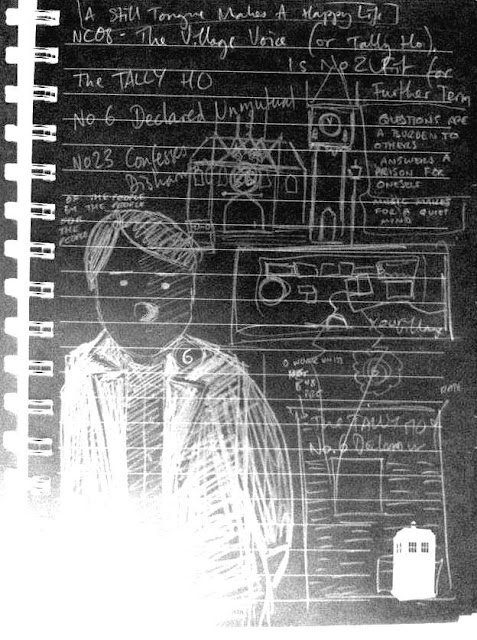 [A Still Tongue Makes A Happy Life]
NC08 - The Village Voice (or Tally Ho).
Is No 2 Fit for
Further Term
The TALLY HO
No 6 Declared Unmutual
No 23 Confesses
QUESTIONS ARE
A BURDEN TO
OTHERS
ANSWERS A
PRISON FOR
ONESELF
MUSIC MAKES
FOR A QUIET
MIND
OF THE PEOPLE
BY THE PEOPLE
FOR
THE
PEOPLE
Your Village
6
DATE
The TALLY HO
No. 6